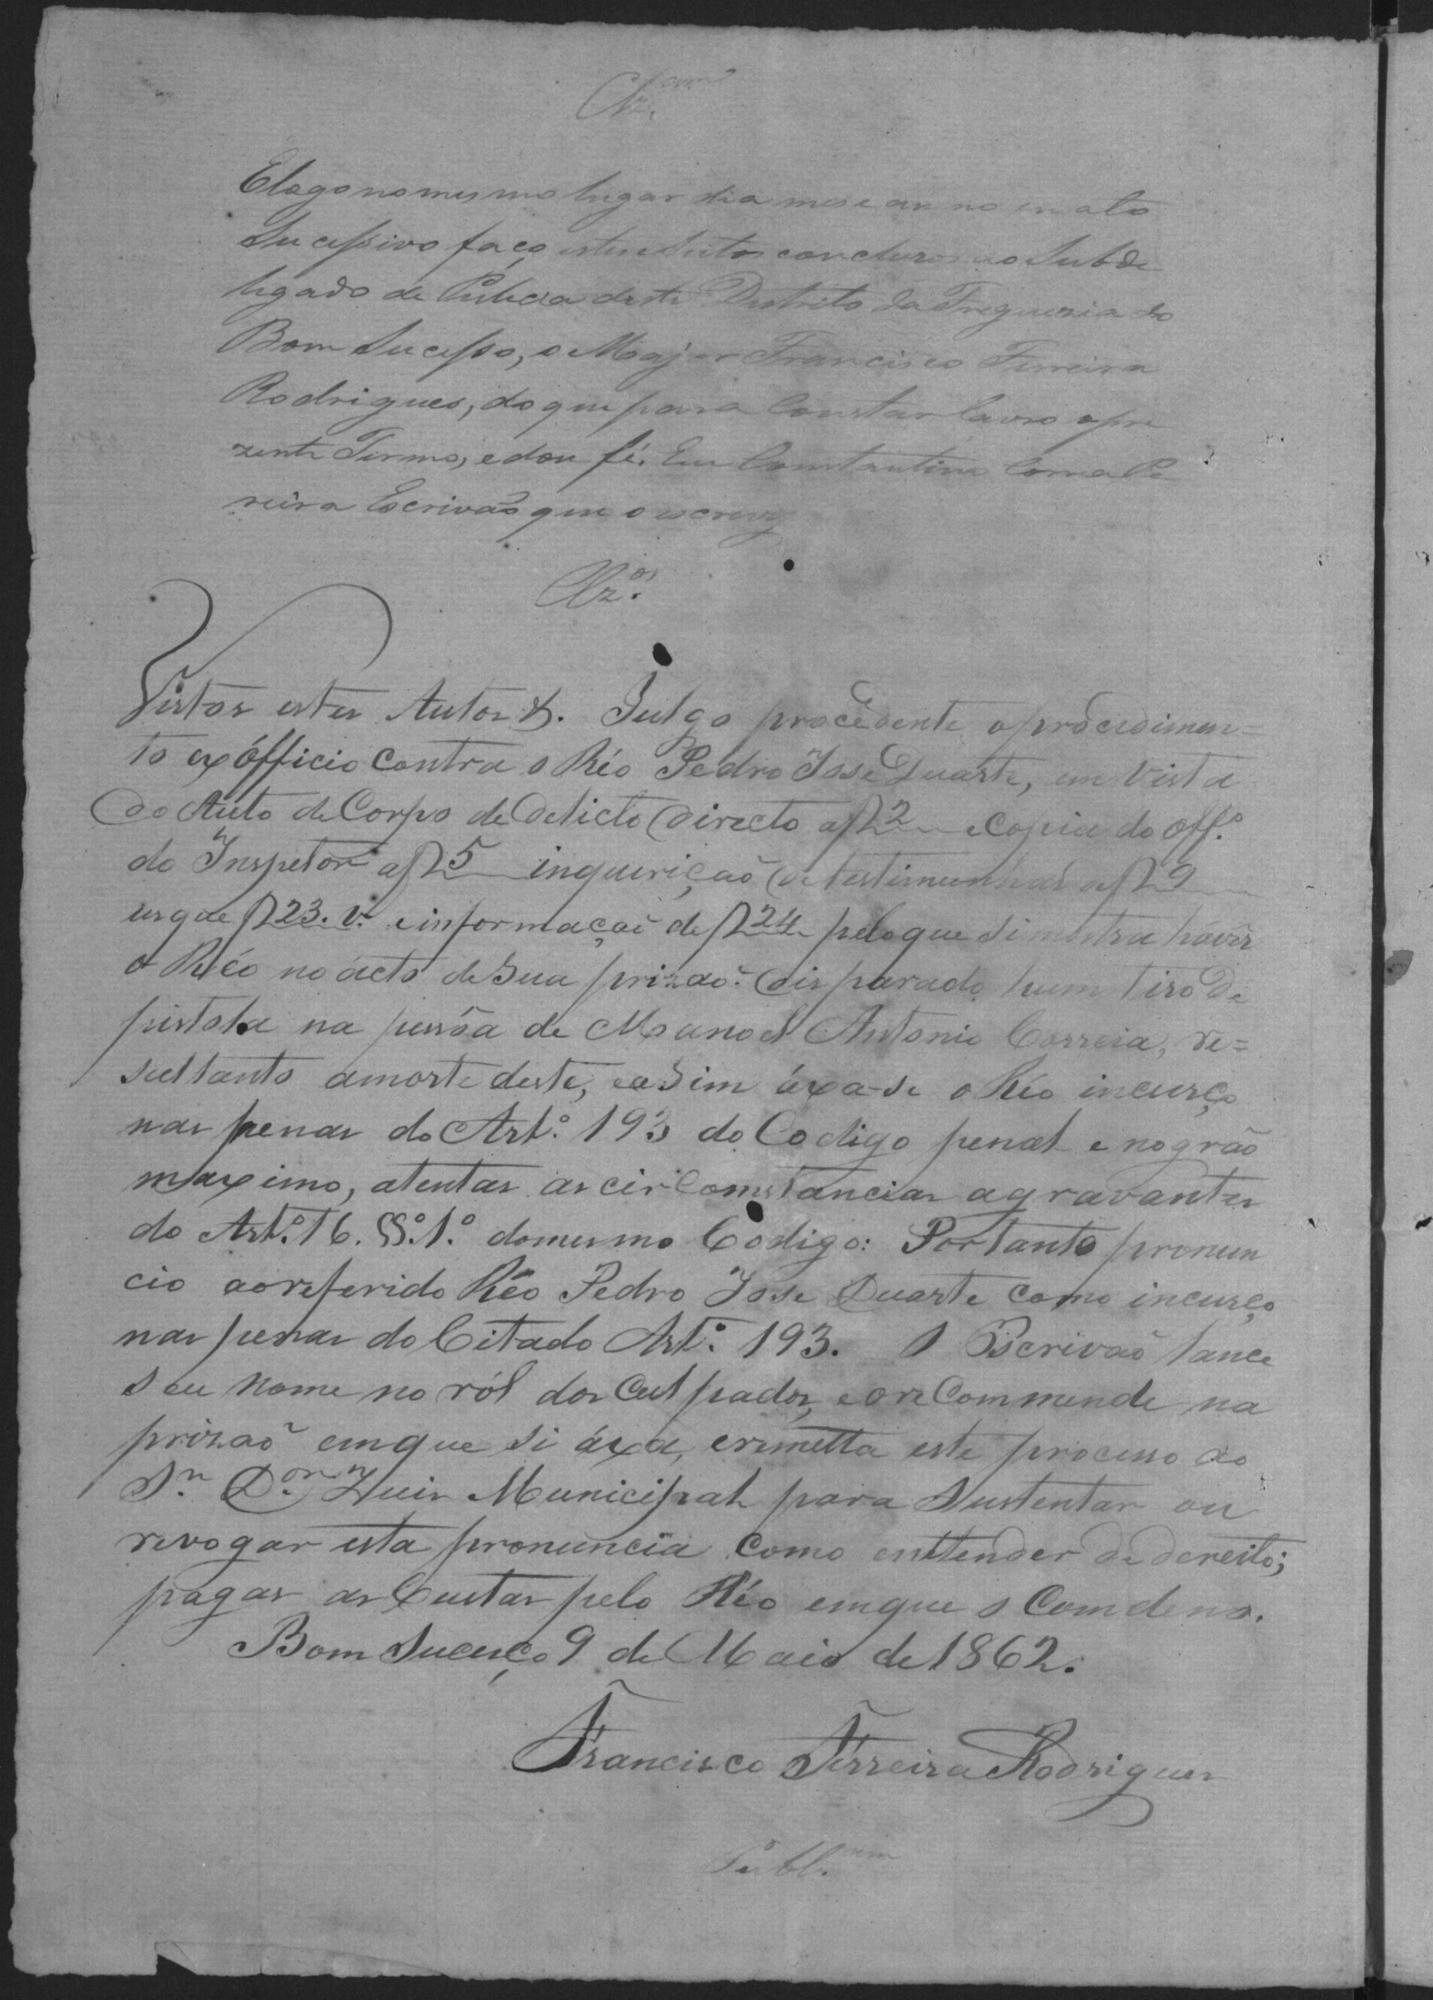 Clz.am
E logo no mesmo lugar dia mes e anno em ato
Sucessivo faço estes Autos conclusos ao Subde
legado de Policia deste Destrito da Freguezia do
Bom Sucesso, o Major Francisco Ferreira
Rodrigues, do que para Constar lavro o pre
zente Termo, e dou fé. Eu Constantino Correa Pe
reira Escrivaõ que o escrevy
Clz.os
Vistos estes Autos &. Julgo procêdente o prôcedimen=
to exófficio contra o Réo Pedro Jose Duarte, em vista
do Auto de Corpo de Delicto directo af 2 e copia do Off.º
do Inspetor af 5 inquiriçaõ de testimunhas af 9
usque f 23. v. e informaçaõ de f 24 pelo que si mostra havêr
o Réo no ácto de Sua prizaõ disparado hum tiro de
pistola na pessôa de Manoel Antonio Correia, re=
sultanto a morte deste, e assim áxa-se o Réo incurço
nas penas do Art.º 193 do Codigo penal e no gráo
maximo, atentas as circomstancias agravantes
do Art.º 16. §§.º 1.º do mesmo Codigo: Portanto pronun
cio ao referido Réo Pedro Jose Duarte como incurço
nas penas do Citado Art.º 193. O Escrivaõ lance
seu nome no ról dos Culpados, e o reCommende na
prizaõ em que si áxa, e remetta este processo ao
Sn.r D.or Juis Municipal para Sustentar ou
revogar esta pronuncia como enttender de dereito;
pagas as Custas pelo Réo em que o Comdeno.
Bom Suceço 9 de Maio de 1862.
Francisco Ferreira Rodrigues
Publ.am